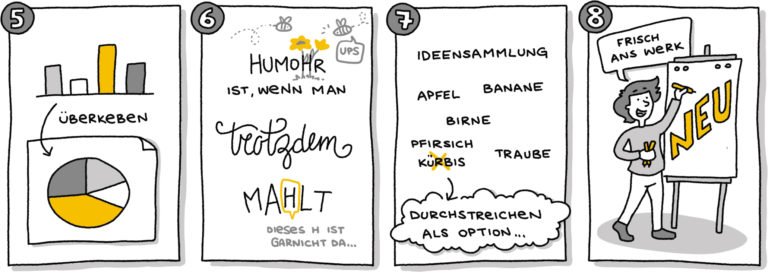 5
ÜBERKEBEN
6
UPS
HUMOHR
IST, WENN MAN
trotzdem
MAHLT
DIESES H IST
GARNICHT DA...
7
IDEENSAMMLUNG
APFEL BANANE
BIRNE
PFIRSICH
KÜRBIS TRAUBE
DURCHSTREICHEN
ALS OPTION...
8
FRISCH
ANS WERK
NEU